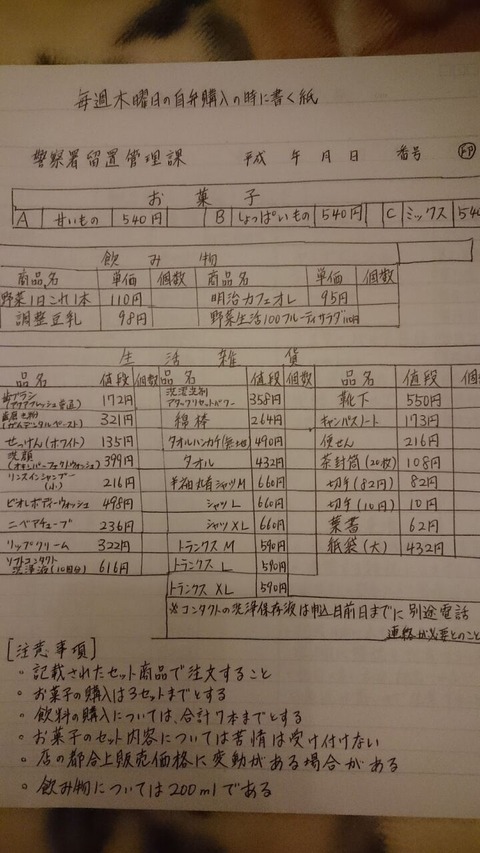 毎週木曜日の自弁購入の時に書く紙
警察署留置管理課 平成 年 月 日 番号
お菓子
A 甘いもの 540円 B しょっぱいもの 540円 C ミックス 540
飲み物
商品名 単価 個数 商品名 単価 個数
野菜1日これ1本 110円 明治カフェオレ 95円
調整豆乳 98円 野菜生活100フルーティサラダ 110円
生活雑貨
品名 値段 個数 品名 値段 個数 品名 値段 個
歯ブラシ(アクアフレッシュ 172円 358円 靴下 550円
321円 綿棒 264円 キャンパスノート 173円
せっけん(ホワイト) 135円 タオルハンカチ(無地) 490円 便せん 216円
洗顔 399円 タオル 432円 茶封筒(20枚) 108円
リンスインシャンプー(小) 216円 半袖丸首シャツM 660円 切手(82円) 82円
ビオレボディーウォッシュ 498円 シャツL 660円 切手(10円) 10円
ニベアチューブ 236円 シャツXL 660円 葉書 62円
リップクリーム 322円 トランクス M 590円 紙袋(大) 432円
ソフトコンタクト洗浄液(10日分) 616円 トランクス L 590円
トランクス XL 590円
※コンタクトの洗浄保存液は申込日前日までに別途電話
連絡が必要とのこと
[注意事項]
・記載されたセット商品で注文すること
・お菓子の購入は3セットまでとする
・飲料の購入については、合計7本までとする
・お菓子のセット内容については苦情は受け付けない
・店の都合上販売価格に変動がある場合がある
・飲み物については200mlである